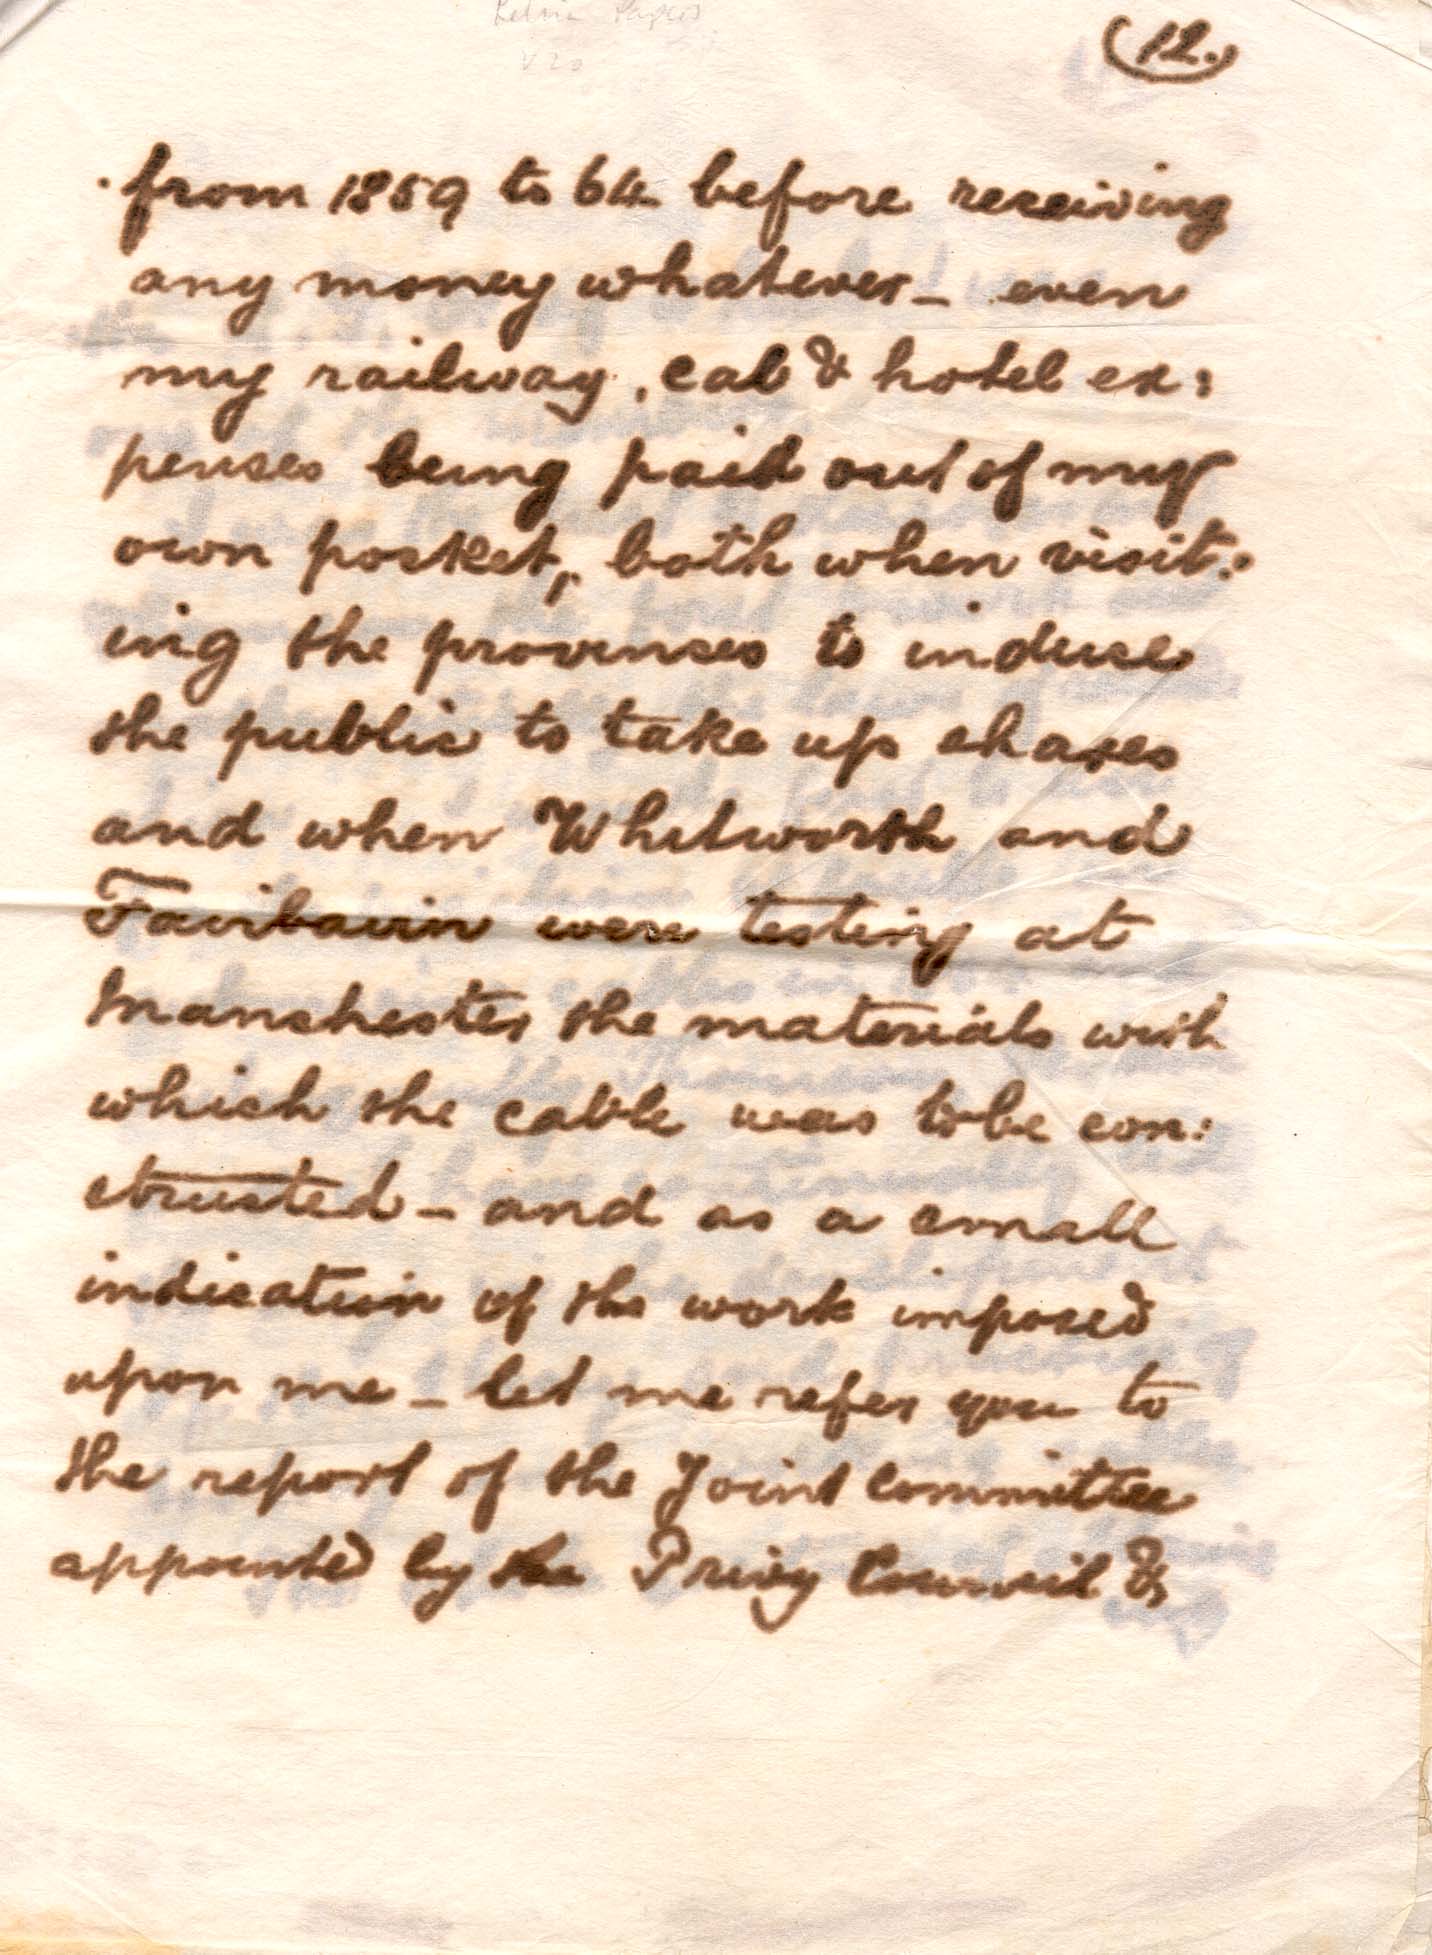 Kelvin Papers
V20
(12.)
from 1859 to 64 before receiving
any money whatever – even
my railway, cab & hotel ex:
penses being paid out of my
own pocket, both when visit:
ing the provinces to induce
the public to take up shares
and when Whitworth and
Fairbairn were testing at
Manchester the materials with
which the cable was to be con:
structed – and as a small
indication of the work imposed
upon me – let me refer you to
the report of the Joint Committee
appointed by the Privy Council &